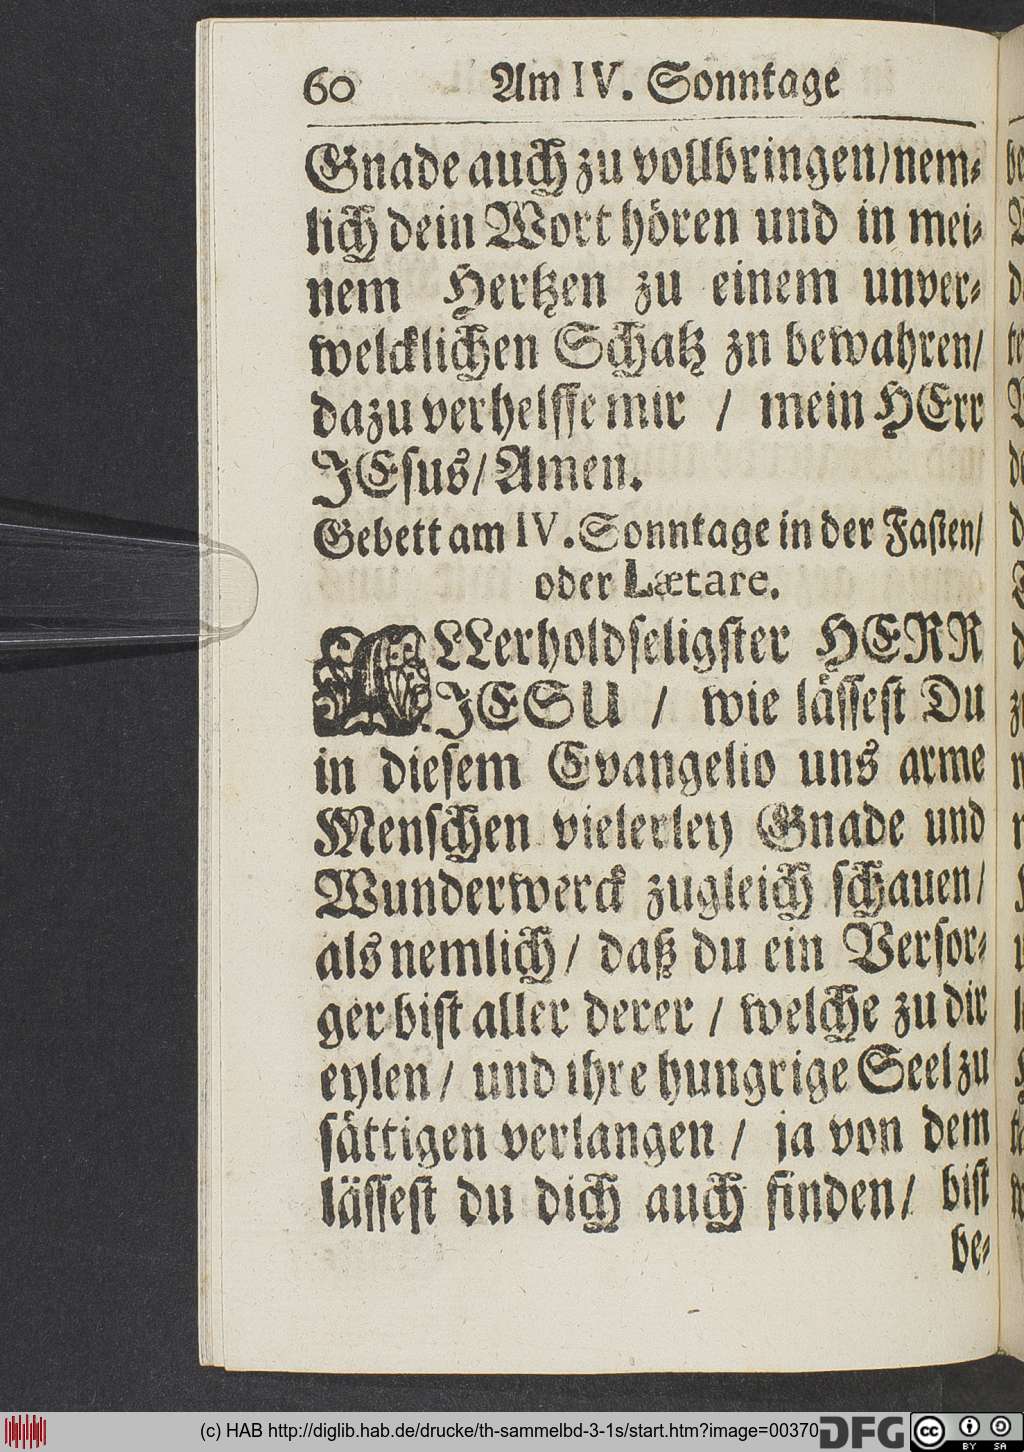 60 Am IV. Sonntage
Gnade auch zu vollbringen/nem⸗
lich dein Wort hören und in mei⸗
nem Hertzen zu einem unver⸗
welcklichen Schatz zn bewahren/
dazu verhelffe mir / mein HErr
JEsus/Amen.
Gebett am IV. Sonntage in der Fasten/
oder Lætare.
ALLerholdseligster HERR
JESU / wie lässest Du
in diesem Evangelio uns arme
Menschen vielerley Gnade und
Wunderwerck zugleich schauen/
als nemlich / daß du ein Versor⸗
ger bist aller derer / welche zu dir
eylen / und ihre hungrige Seel zu
sättigen verlangen / ja von dem
lässest du dich auch finden/ bist
be⸗
(c) HAB http://diglib.hab.de/drucke/th-sammelbd-3-1s/start.htm?image=00370
DFG
cc BY SA